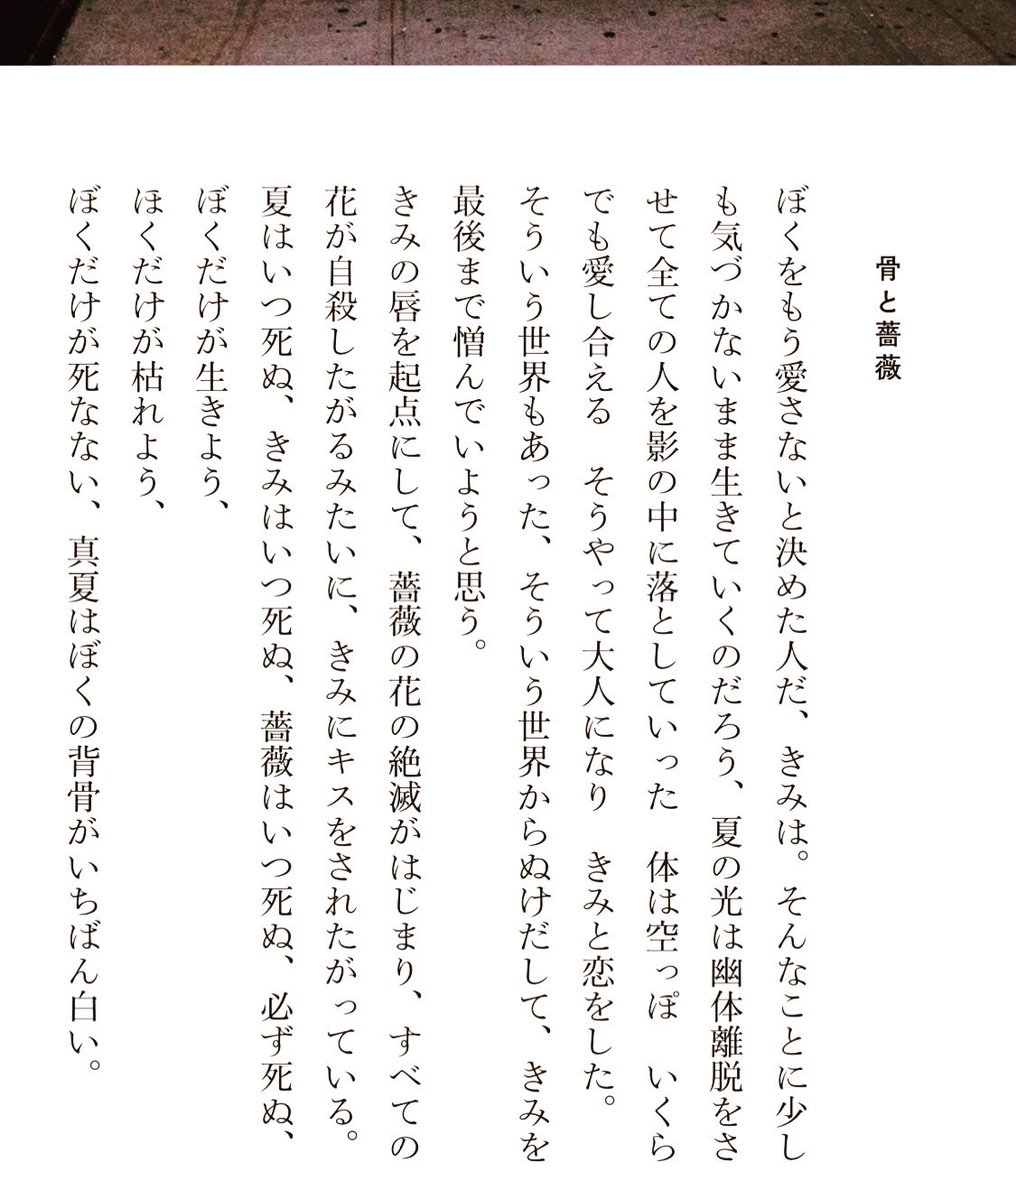 骨と薔薇
ぼくをもう愛さないと決めた人だ、きみは。そんなことに少し
も気づかないまま生きていくのだろう、夏の光は幽体離脱をさ
せて全ての人を影の中に落としていった　体は空っぽ　いくら
でも愛し合える　そうやって大人になり　きみと恋をした。
そういう世界もあった、そういう世界からぬけだして、きみを
最後まで憎んでいようと思う。
きみの唇を起点にして、薔薇の花の絶滅がはじまり、すべての
花が自殺したがるみたいに、きみにキスをされたがっている。
夏はいつ死ぬ、きみはいつ死ぬ、薔薇はいつ死ぬ、必ず死ぬ、
ぼくだけが生きよう、
ほくだけが枯れよう、
ぼくだけが死なない、真夏はぼくの背骨がいちばん白い。